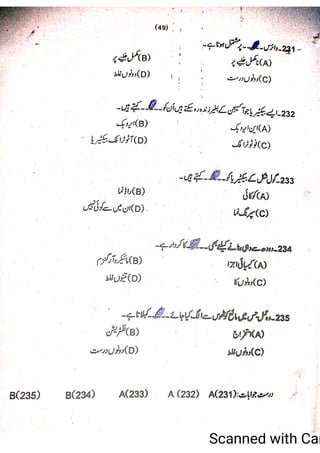 (49)
231- وائرس ـــ پر مشتمل ہوتا ہے۔
(A) مکمل خلیے پر (B) نامکمل خلیے پر
(C) دونوں درست (D) دونوں غلط
232- ایسے بیکٹیریا جو آکسیجن کے بغیر زندہ رہ سکتے ہیں ان کو ـــ کہتے ہیں۔
(A) این ایروبک (B) ایروبک
(C) فوٹوٹرافک (D) آٹوٹرافک بیکٹیریا
233- گول شکل کے بیکٹیریا کو ـــ کہتے ہیں۔
(A) کوکائی (B) راڈنما
(C) سپرنگ نما (D) ان میں سے کوئی نہیں
234- دودھ سے دہی بنانے کیلئے بھی ـــ کا کردار ہے۔
(A) کیمیائی اجزا (B) مائیکرو آرگنزم
(C) دونوں کا (D) تینوں غلط
235- وہ عمل جس میں مائع کو ٹھوس سے الگ کیا جائے ـــ کہلاتا ہے۔
(A) اخراج (B) فلٹریشن
(C) دونوں غلط (D) دونوں درست
درست جوابات: A(231) A (232) A(233) B(234) B(235)
Scanned with Ca